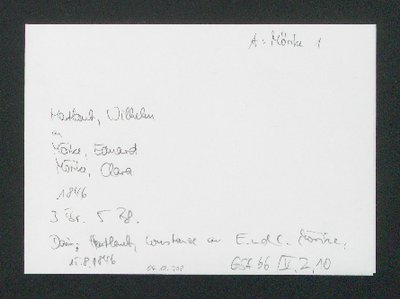 A: Mörike 1
Hartlaub, Wilhelm
an
Mörike, Eduard
Mörike, Clara
1846
3 Br. 5 Bl.
Darin: Hartlaub, Constanze an E. und C. Mörike,
15.8.1846
GSA 66 IV, 2, 10